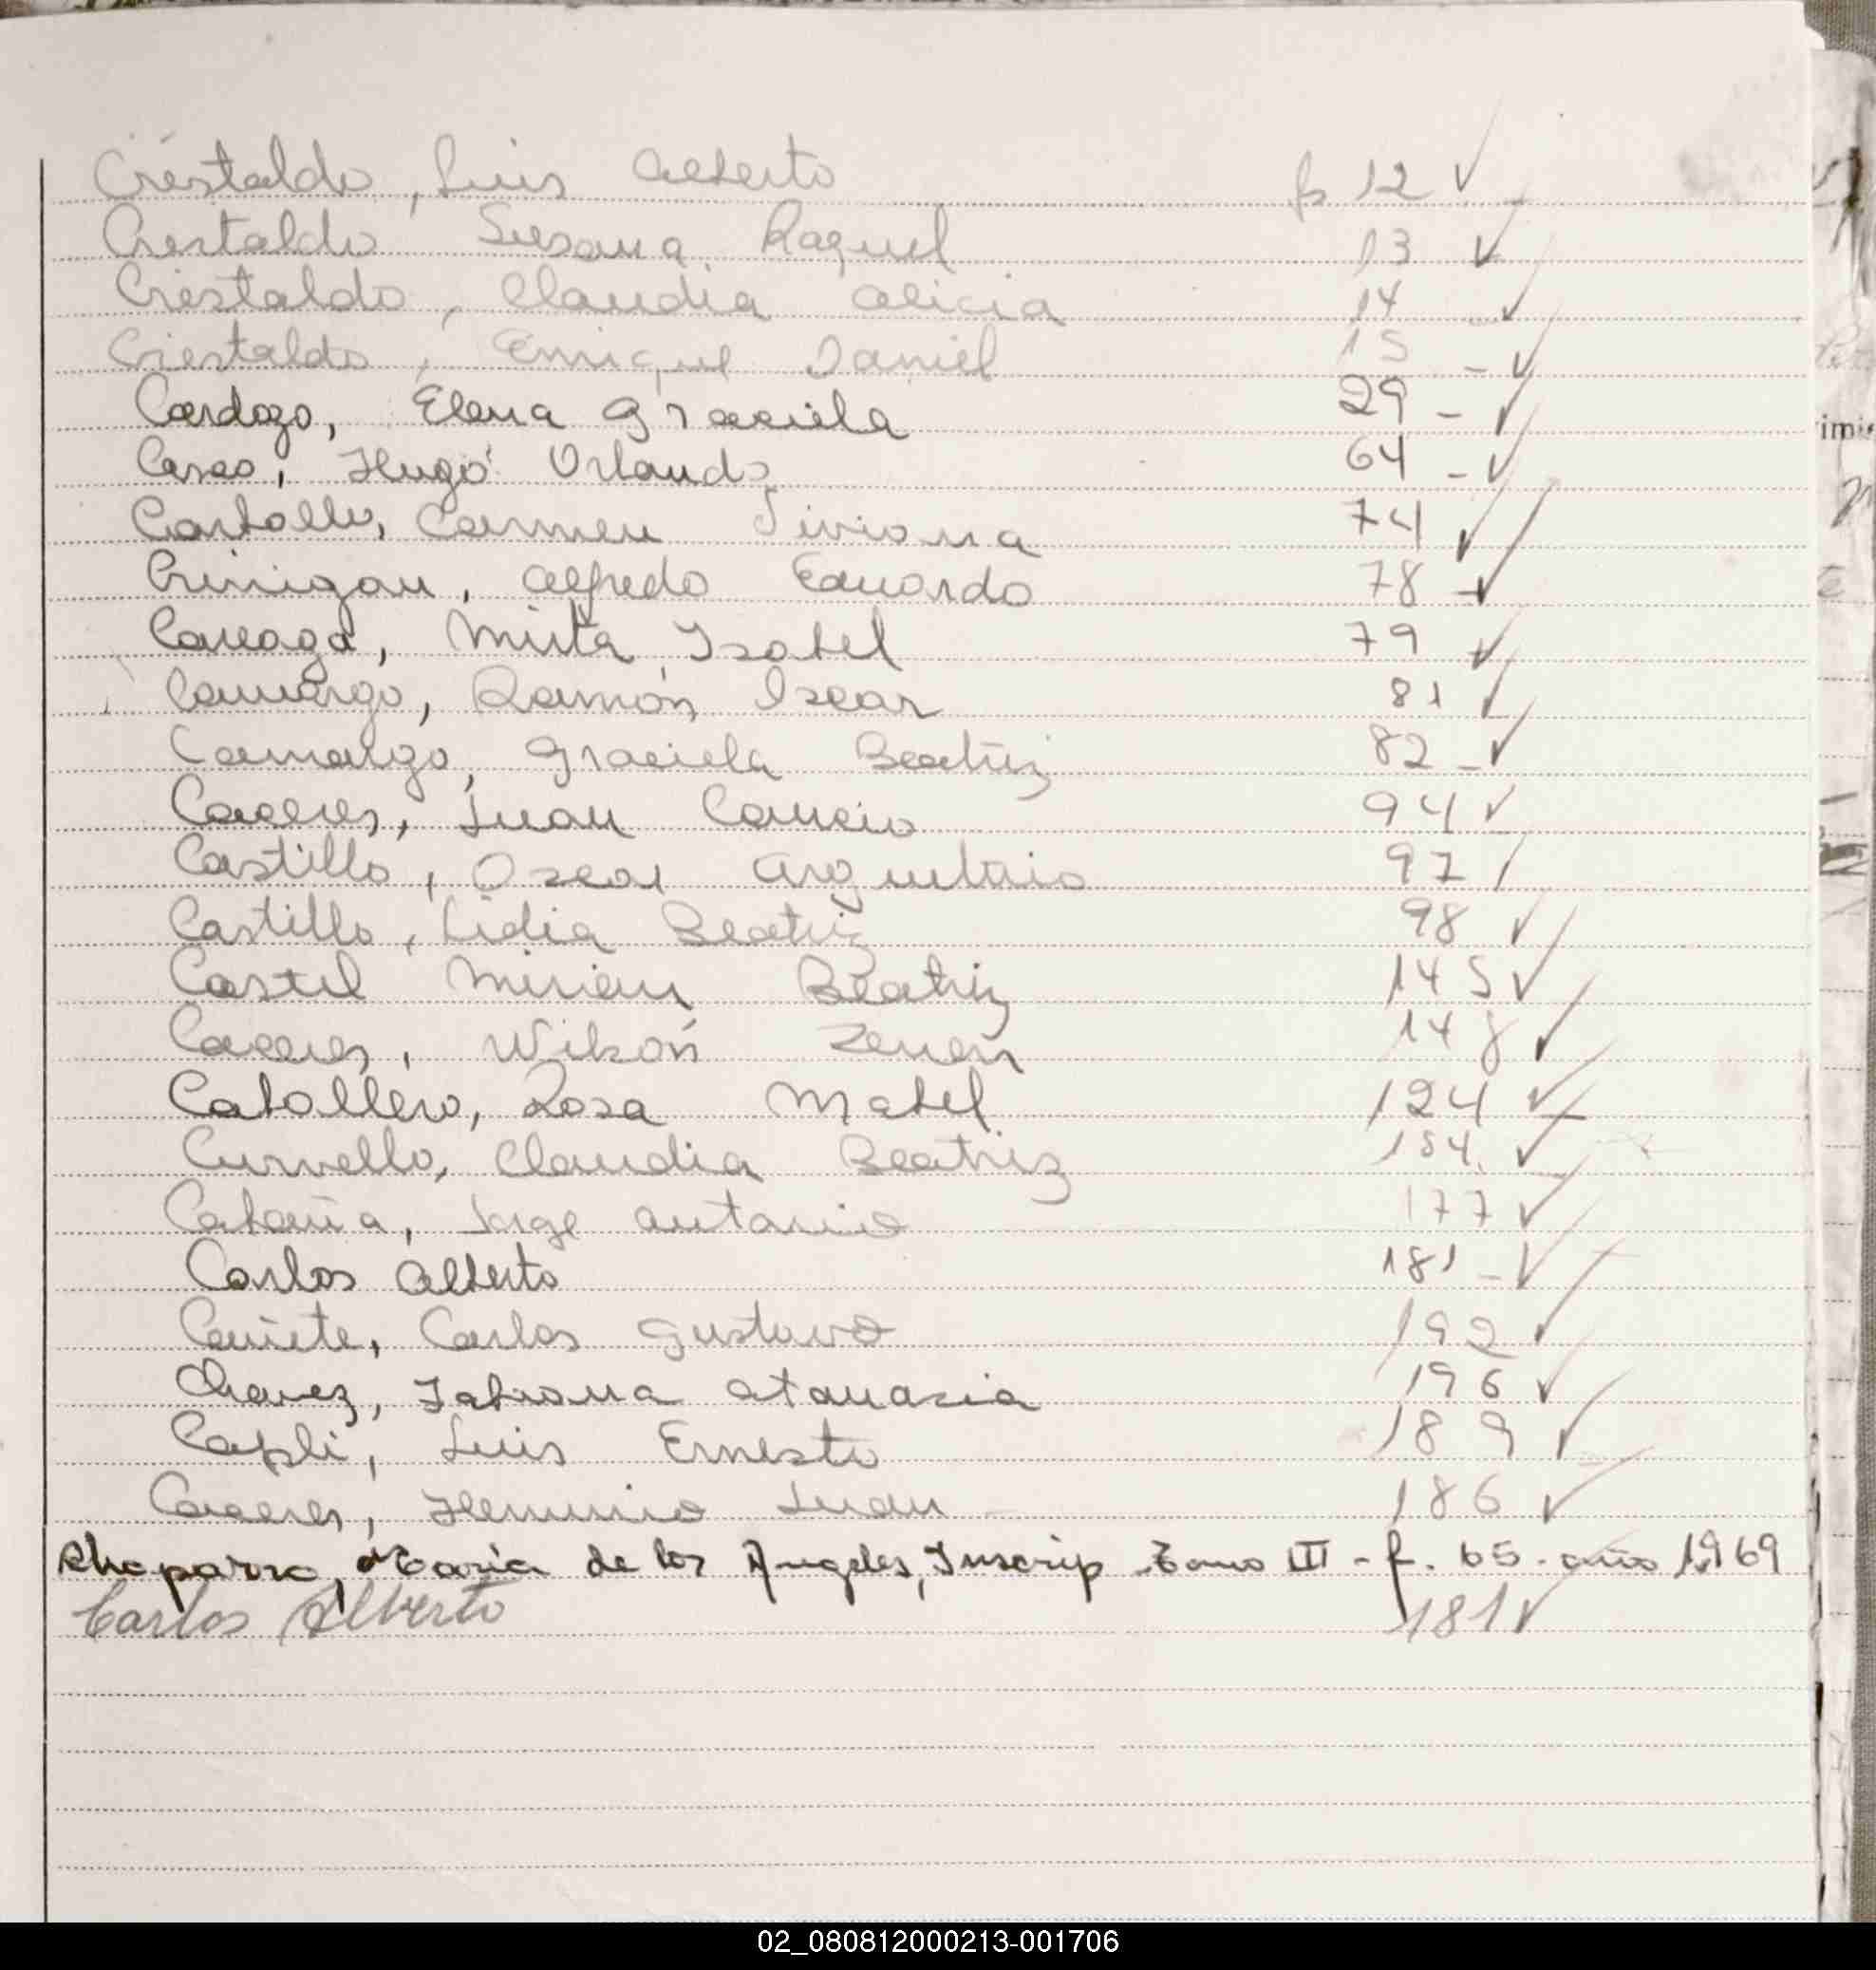 Cristaldo, Luis Alberto f 12 ✓
Cristaldo Susana Raquel 13 ✓
Cristaldo, Claudia Alicia 14 - ✓
Cristaldo, Enrique Daniel 15 - ✓
Cardozo, Elena Graciela 29 - ✓
Hugo Orlando 64 - ✓
Carballo, Carmen Viviana 74 ✓
Alfredo Eduardo 78 - ✓
Careaga, Mirta Isabel 79 ✓
Camargo, Ramón Oscar 81 ✓
Camargo, Graciela Beatriz 82 - ✓
Caceres, Juan 94 ✓
Castillo, Oscar Argentino 97 /
Castillo, Lidia Beatriz 98 ✓
Castel Miriam Beatriz 145 ✓
Caceres, Wilson Zenon 148 ✓
Caballero, Rosa Mabel 124 ✓
Curvello, Claudia Beatriz 154. ✓
Jorge Antonio 177 ✓
Carlos Alberto 181 - ✓
Cañete, Carlos Gustavo 192 ✓
Chavez, Tatiana Atanasia 196 ✓
Luis Ernesto 189 ✓
Caceres, Herminio Juan 186 ✓
Chaparro, María de los Angeles, Inscrip Tomo III - f. 65 - año 1969
Carlos Alberto 181 ✓
02_080812000213-001706